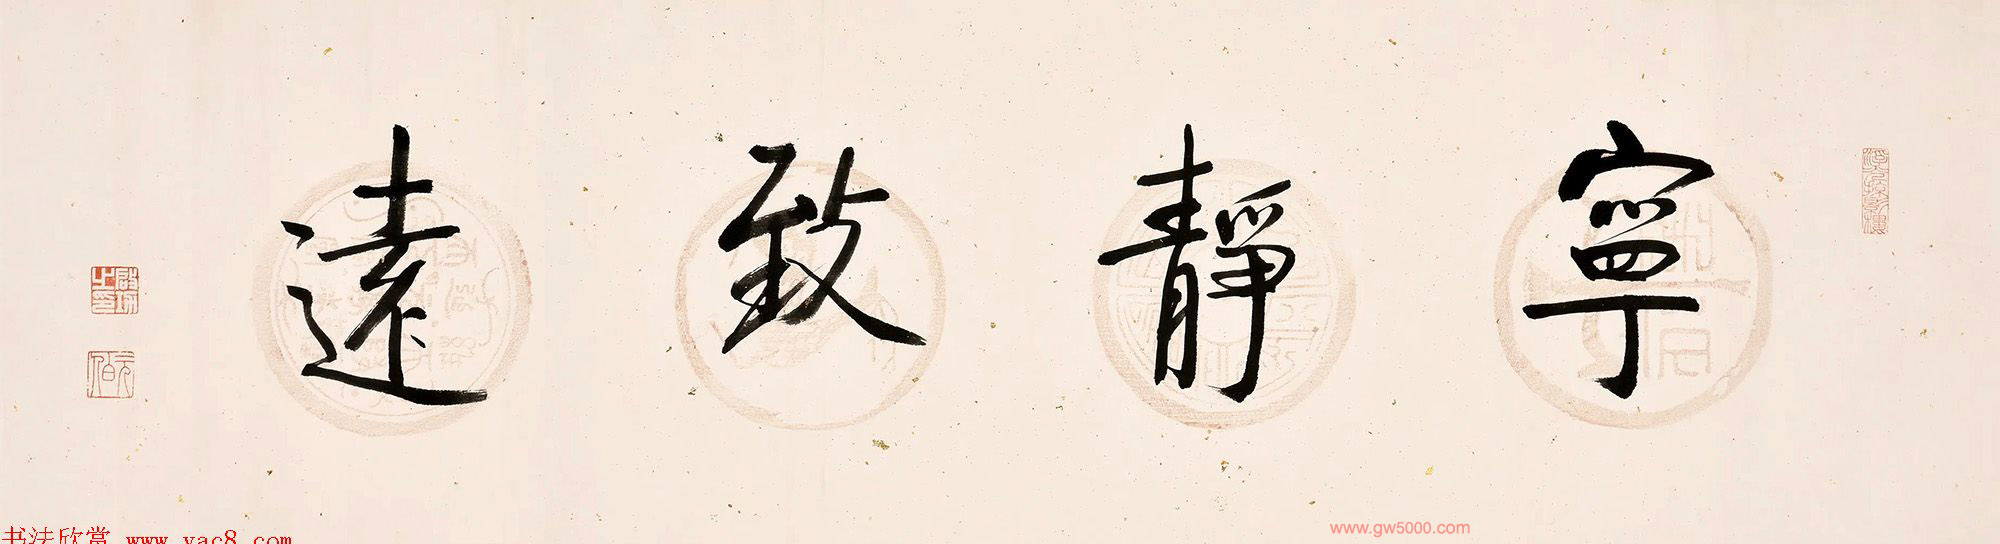 寧靜致遠
啟功之印
元伯
书法欣赏 www.yac8.com
www.gw5000.com